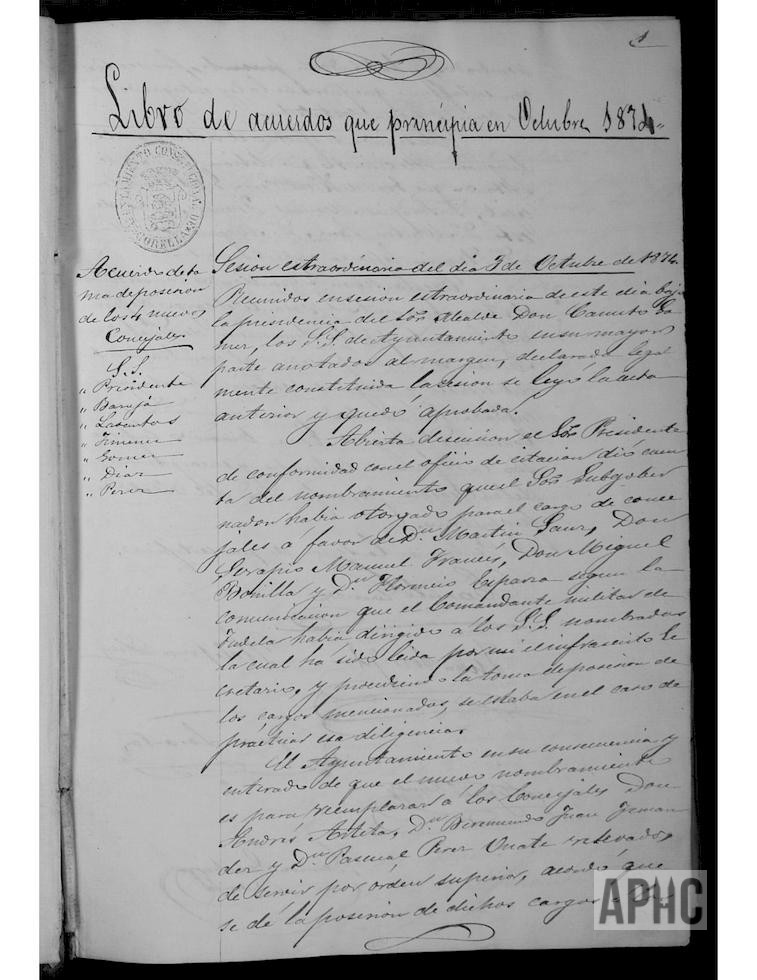 1
Libro de acuerdos que principia en Octubre 1874=
AYUNTAMIENTO CONSTITUCIONAL DE CORELLA
Acuerdo de to
ma de posesion
de los 4 nuevos
Concejales
S.S.
" Presidente
" Barajá
" Labentos
" Jimenez
" Gomez
" Diaz
" Perez
Sesion estraordinaria del dia 3 de Octubre de 1874.
Reunidos en sesion estraordinaria de este dia bajo
la presidencia del Sor Alcalde Don Canuto
los S.S. de Ayuntamiento en su mayor
parte anotados al margen, declarada legal
mente constituida la sesion se leyó la acta
anterior y quedó aprobada.
Abierta discusion el Sor Presidente
de conformidad con el oficio de citacion dió cuen
ta del nombramiento que el Sor Subgober
nador habia otorgado para el cargo de conce
jales á favor de Dn Martin Sanz, Don
Serapio Manuel Francés, Don Miguel
Bonilla y Dn Florencio Esparza segun la
comunicacion que el Comandante militar de
Tudela habia dirigido á los S.S. nombrados
la cual ha sido leida por mi el infrascrito Se
cretario, y procediendo la toma de posesion de
los cargos mencionados, se estaba en el caso de
practicar esa diligencia.
El Ayuntamiento en su consecuencia y
enterado de que el nuevo nombramiento
es para reemplazar á los Concejales Don
Andrés Arteta, Dn Beremundo Juan
y Dn Pascual Perez Oñate relevados
de servir por orden superior, acordó que
se dé la posesion de dichos cargos
APHC